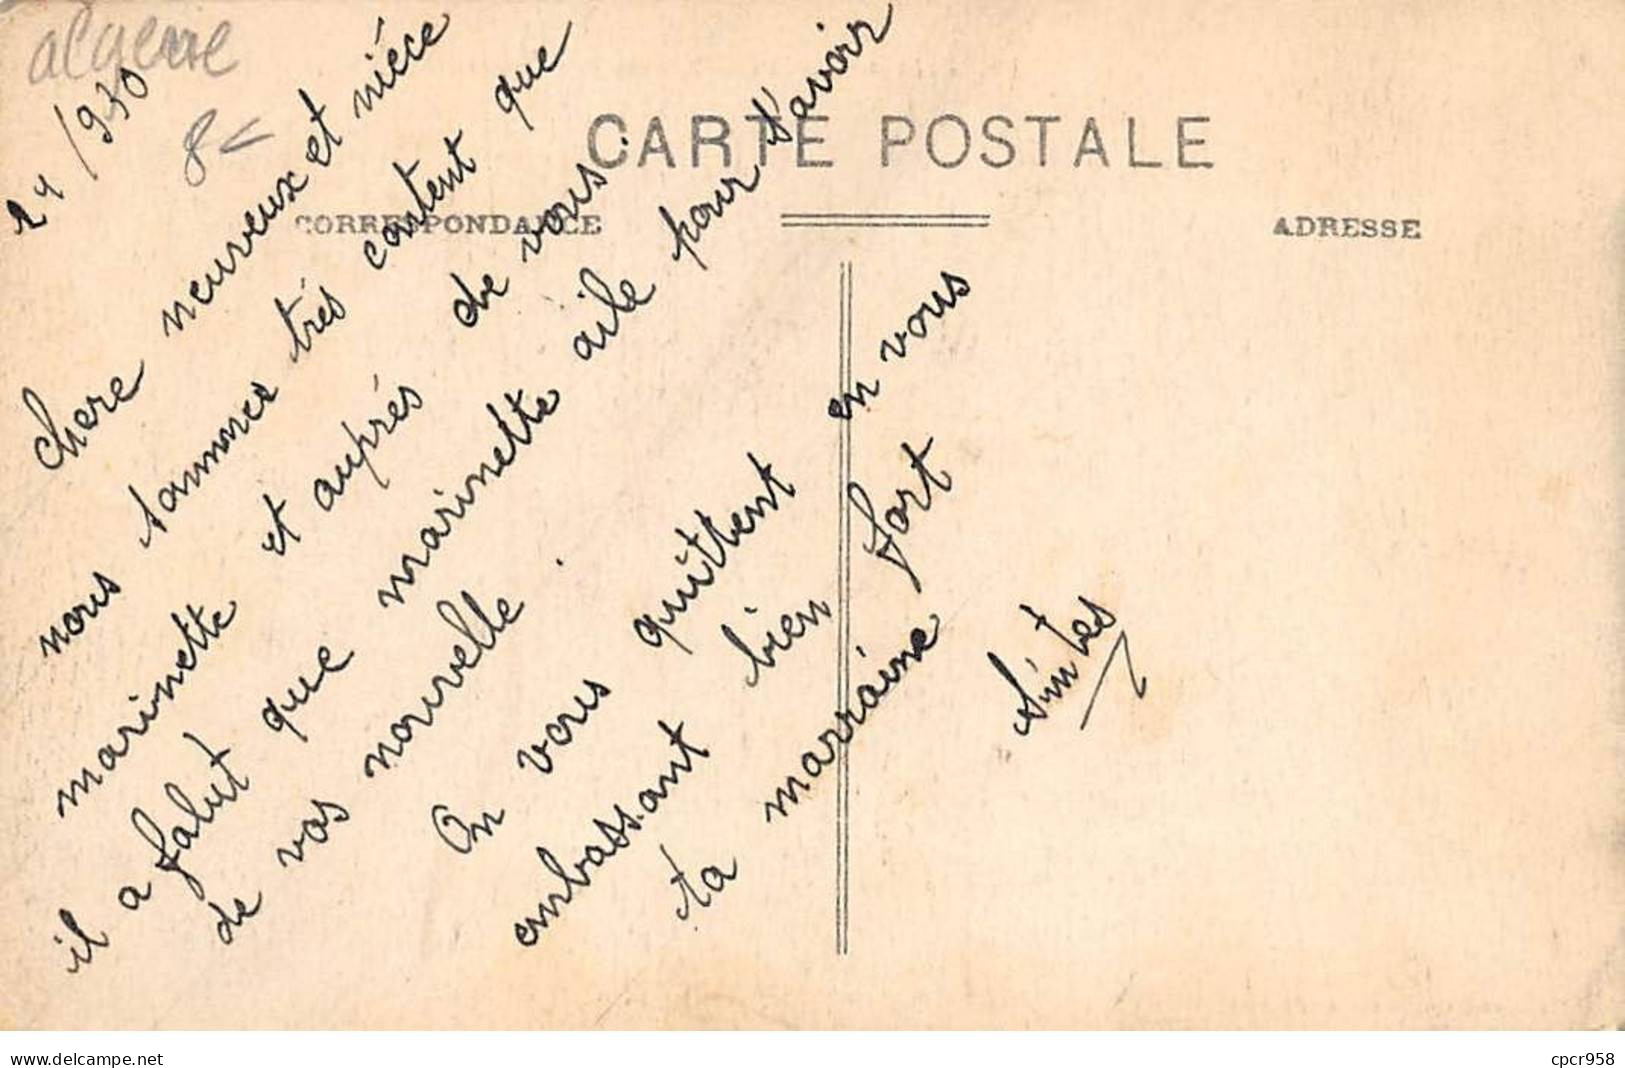 algerie
8
CARTE POSTALE
CORRESPONDANCE
ADRESSE
chere neuveux et niéce
nous sommes trés content que
marinette et auprés de vous.
il a falut que marinette aile pour s'avoir
de vos nouvelle.
On vous quittent en vous
embassant bien fort
ta marraine
www.delcampe.net
cpcr958